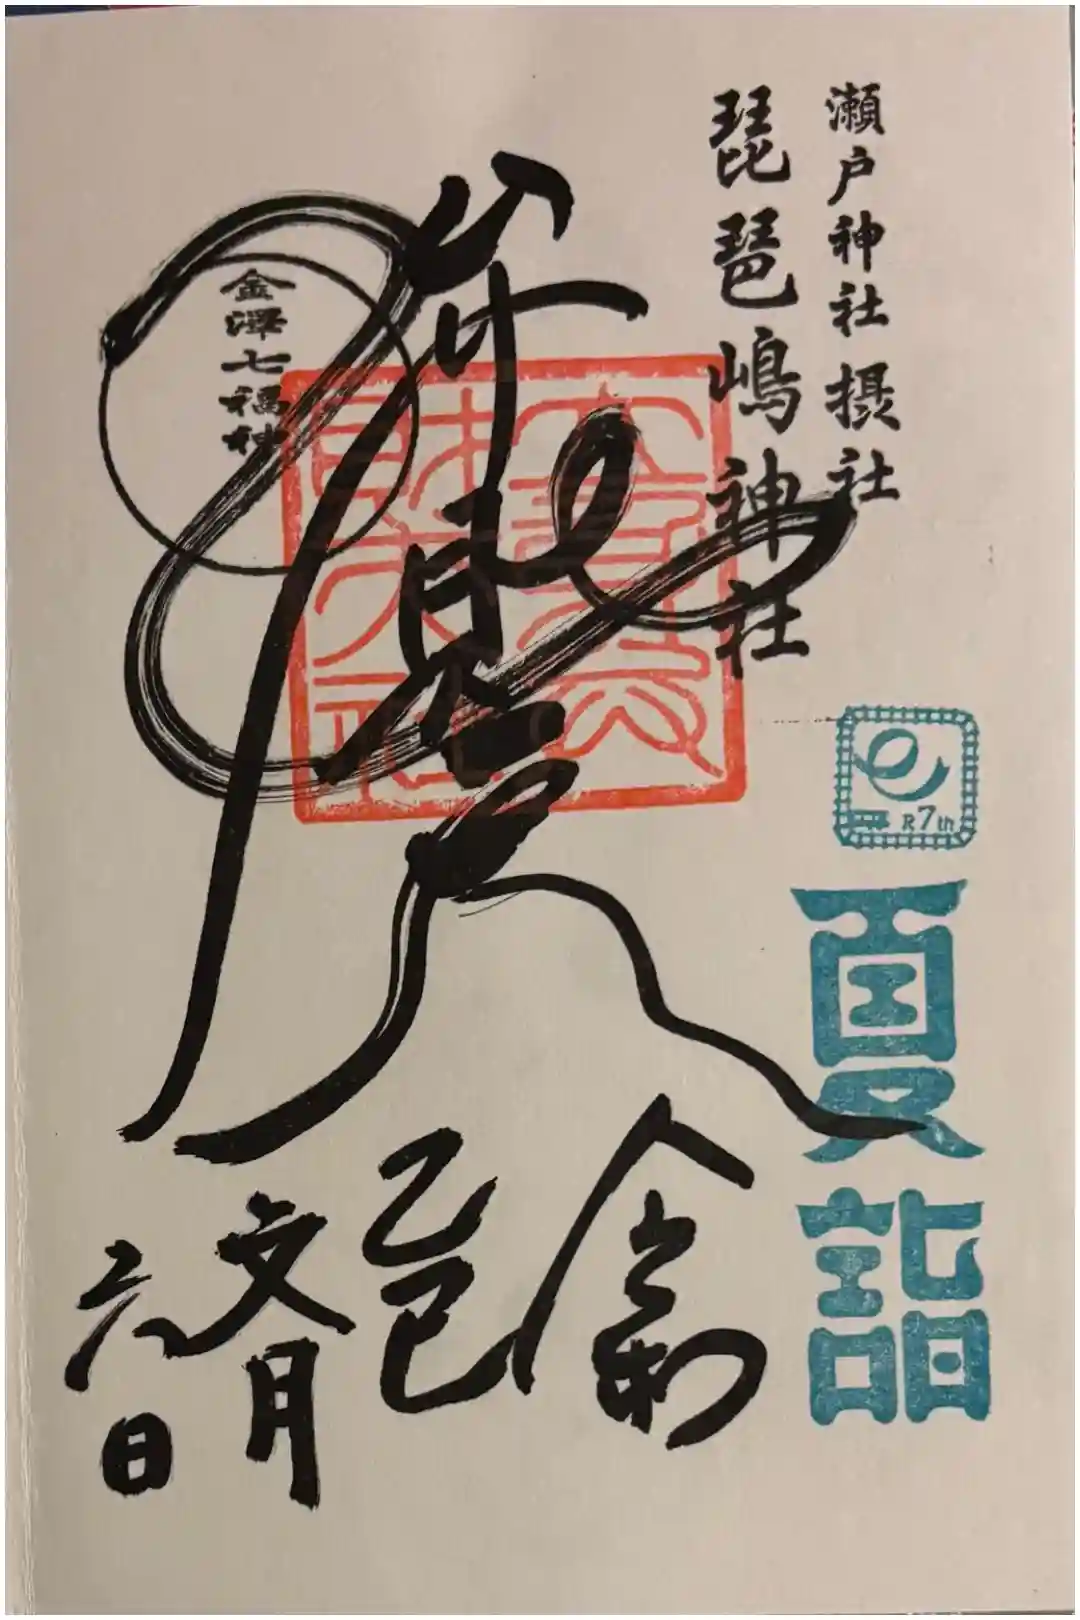 瀬戸神社摂社
琵琶嶋神社
R7th
夏詣
金澤七福神
令和
乙巳
文月
六日